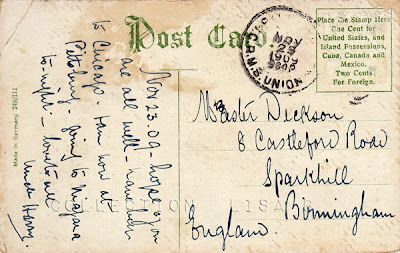 Post Card.
Place the Stamp Here
One Cent for
United States, and
Island Possessions,
Cuba, Canada and
Mexico,
Two Cents
For Foreign.
NOV
23
UNION
Made in Germany 248/111
Nov 23.09 - hope you
are all well - have been
to Chicago am now at
Pittsburg - going to Niagara
to-night - love to all
Uncle Harry.
Master Dickson
8 Castleford Road
Sparkhill
Birmingham
England.
COLLECTION LISA B